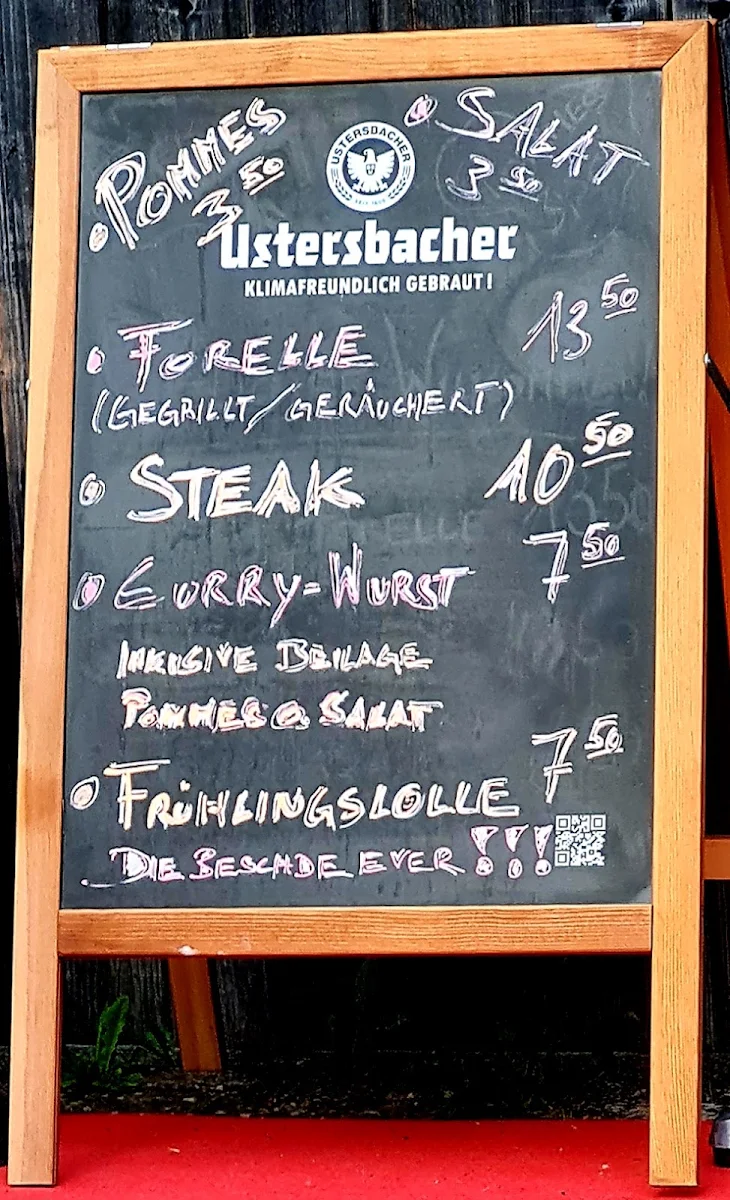 • POMMES 3 50
• SALAT 3 50
USTERSBACHER
Ustersbacher
KLIMAFREUNDLICH GEBRAUT!
• FORELLE 13 50
(GEGRILLT/GERÄUCHERT)
• STEAK 10 50
• CURRY-WURST 7 50
INKLUSIVE BEILAGE
POMMES o. SALAT
• FRÜHLINGSLOLLE 7 50
DIE BESCHDE EVER !!!